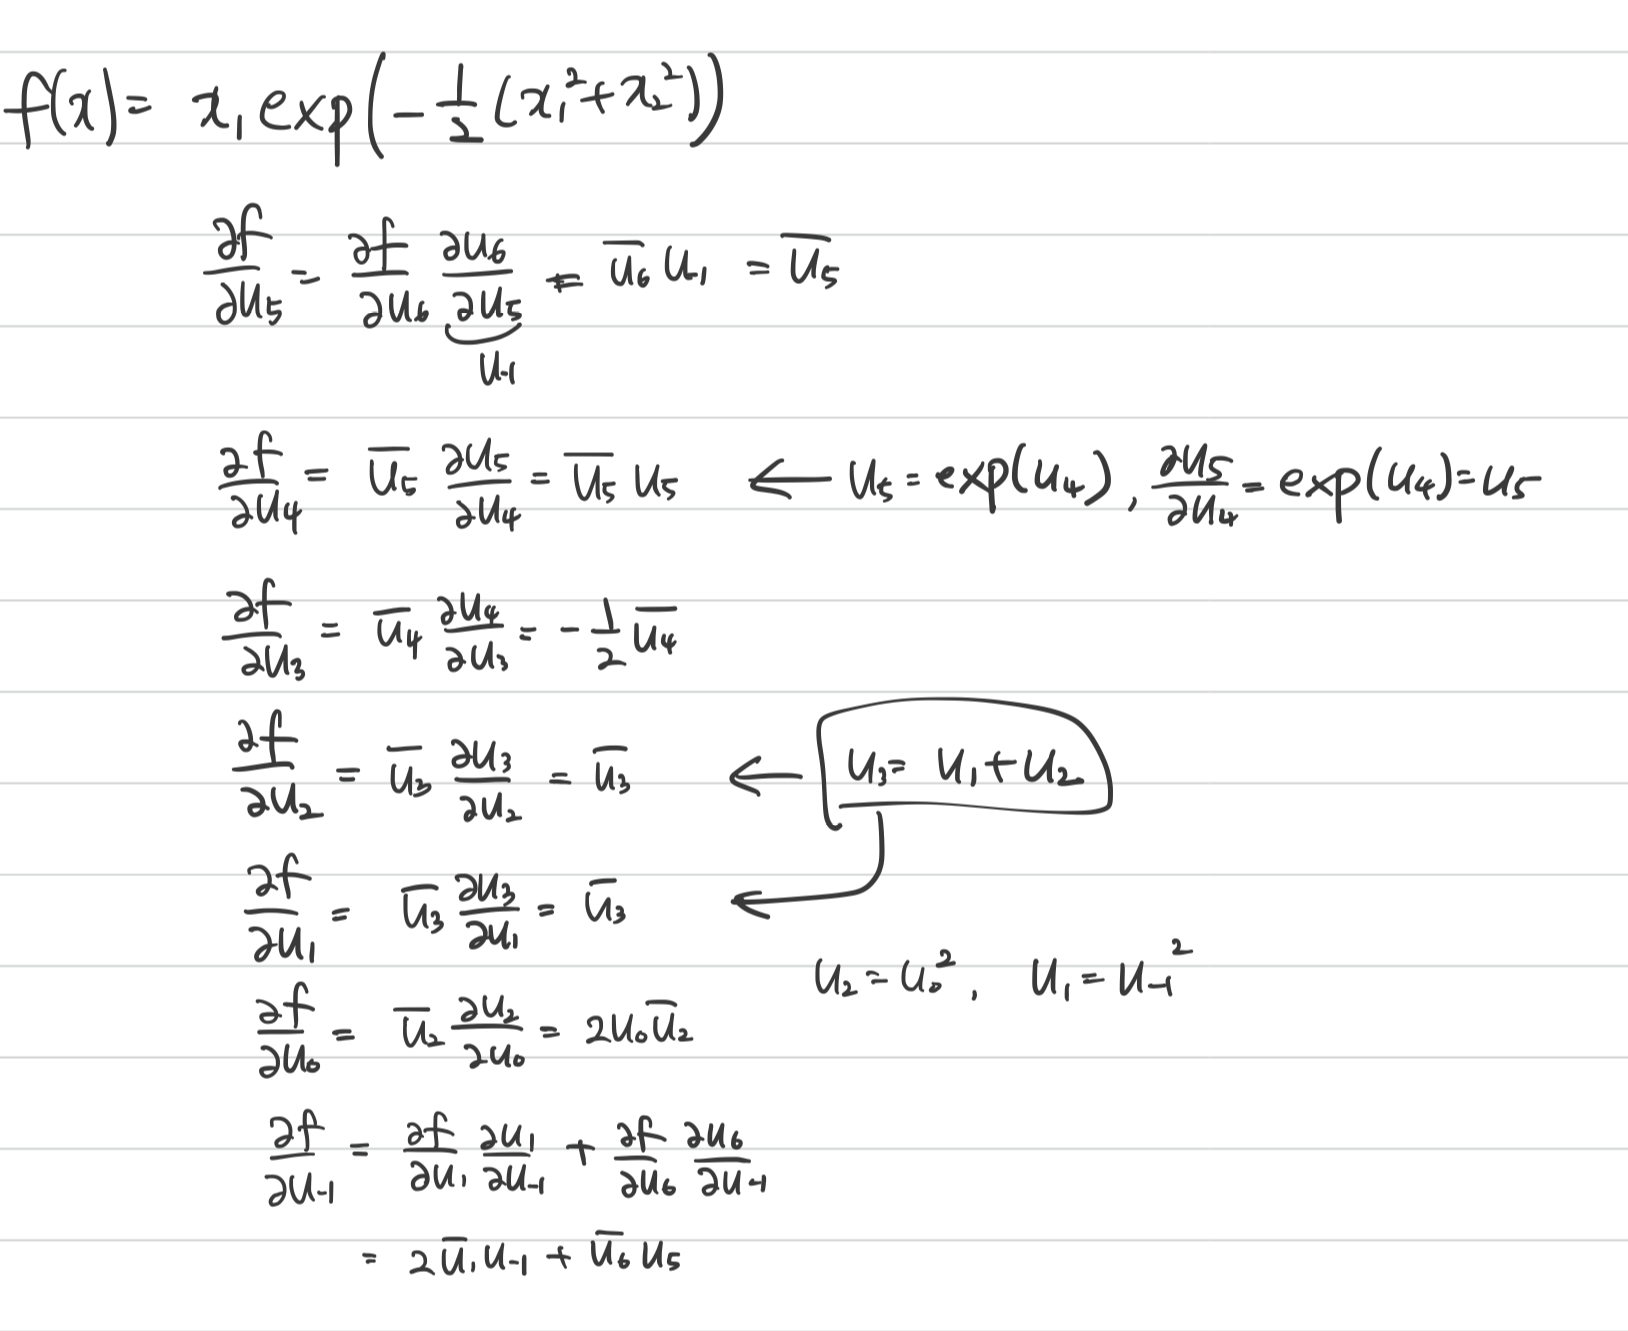 f(x) = x₁ exp(-½(x₁²+x₂²))
∂f/∂u₅ = ∂f/∂u₆ ∂u₆/∂u₅ = u̅₆ u₋₁ = u̅₅
u₋₁
∂f/∂u₄ = u̅₅ ∂u₅/∂u₄ = u̅₅ u₅ ← u₅ = exp(u₄), ∂u₅/∂u₄ = exp(u₄) = u₅
∂f/∂u₃ = u̅₄ ∂u₄/∂u₃ = -½ u̅₄
∂f/∂u₂ = u̅₃ ∂u₃/∂u₂ = u̅₃ ← u₃ = u₁+u₂
∂f/∂u₁ = u̅₃ ∂u₃/∂u₁ = u̅₃ ←
u₂ = u₀², u₁ = u₋₁²
∂f/∂u₀ = u̅₂ ∂u₂/∂u₀ = 2u₀u̅₂
∂f/∂u₋₁ = ∂f/∂u₁ ∂u₁/∂u₋₁ + ∂f/∂u₆ ∂u₆/∂u₋₁
= 2u̅₁u₋₁ + u̅₆ u₅